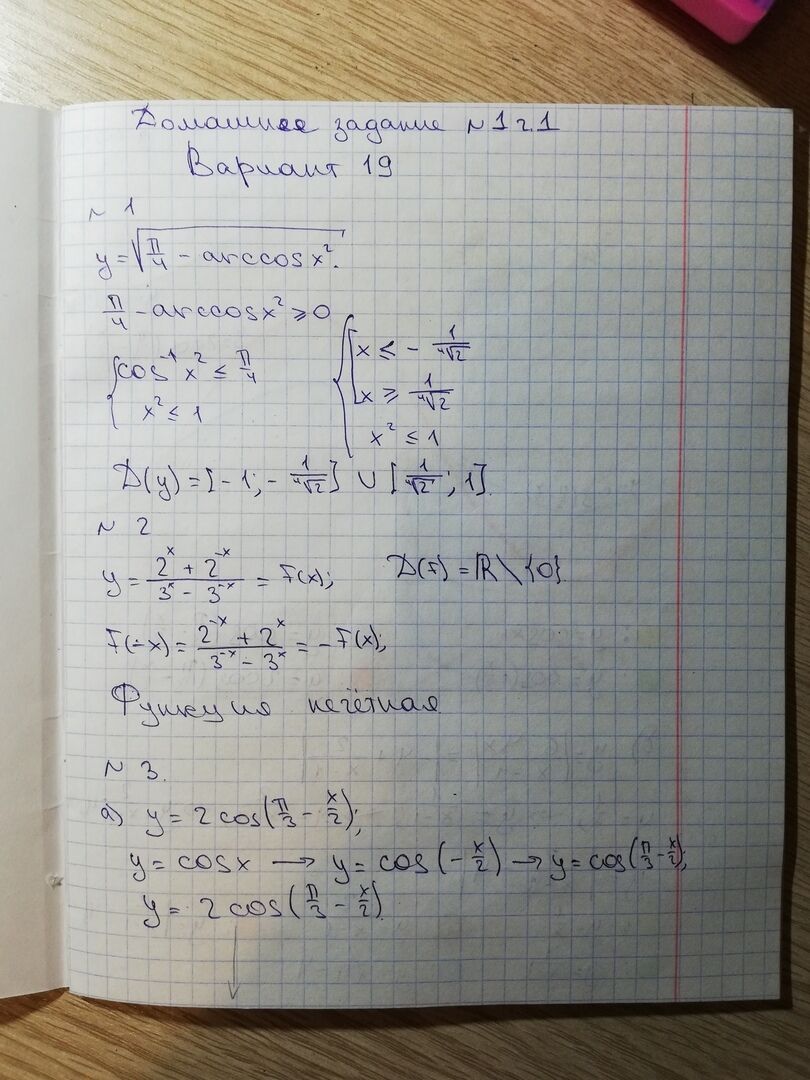 Домашнее задание №1 ч.1
Вариант 19
№ 1
y = √(π/4 - arccos x²).
π/4 - arccos x² ≥ 0
{cos⁻¹ x² ≤ π/4
x² ≤ 1
{[x ≤ - 1/⁴√2
x ≥ 1/⁴√2
x² ≤ 1
D(y) = [-1; - 1/⁴√2] ∪ [1/⁴√2; 1].
№ 2
y = (2ˣ + 2⁻ˣ)/(3ˣ - 3⁻ˣ) = F(x); D(F) = ℝ \ {0}
F(-x) = (2⁻ˣ + 2ˣ)/(3⁻ˣ - 3ˣ) = -F(x);
Функция нечётная
№ 3.
а) y = 2 cos(π/3 - x/2);
y = cos x → y = cos(-x/2) → y = cos(π/3 - x/2);
y = 2 cos(π/3 - x/2)